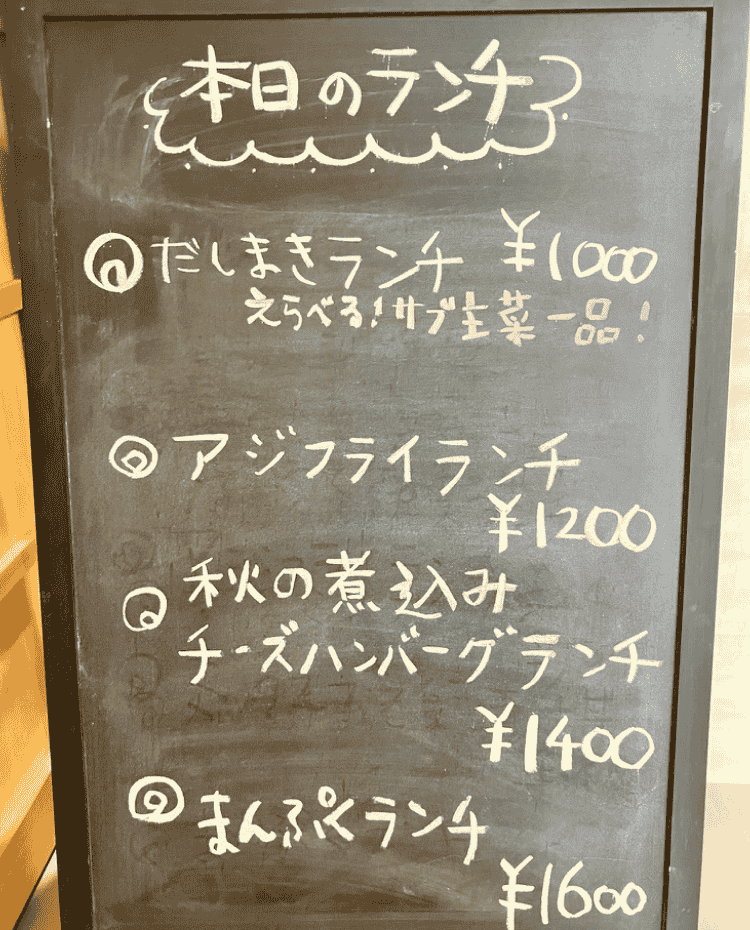 本日のランチ
だしまきランチ ¥1000
えらべる!サブ主菜一品!
アジフライランチ
¥1200
秋の煮込み
チーズハンバーグランチ
¥1400
まんぷくランチ
¥1600